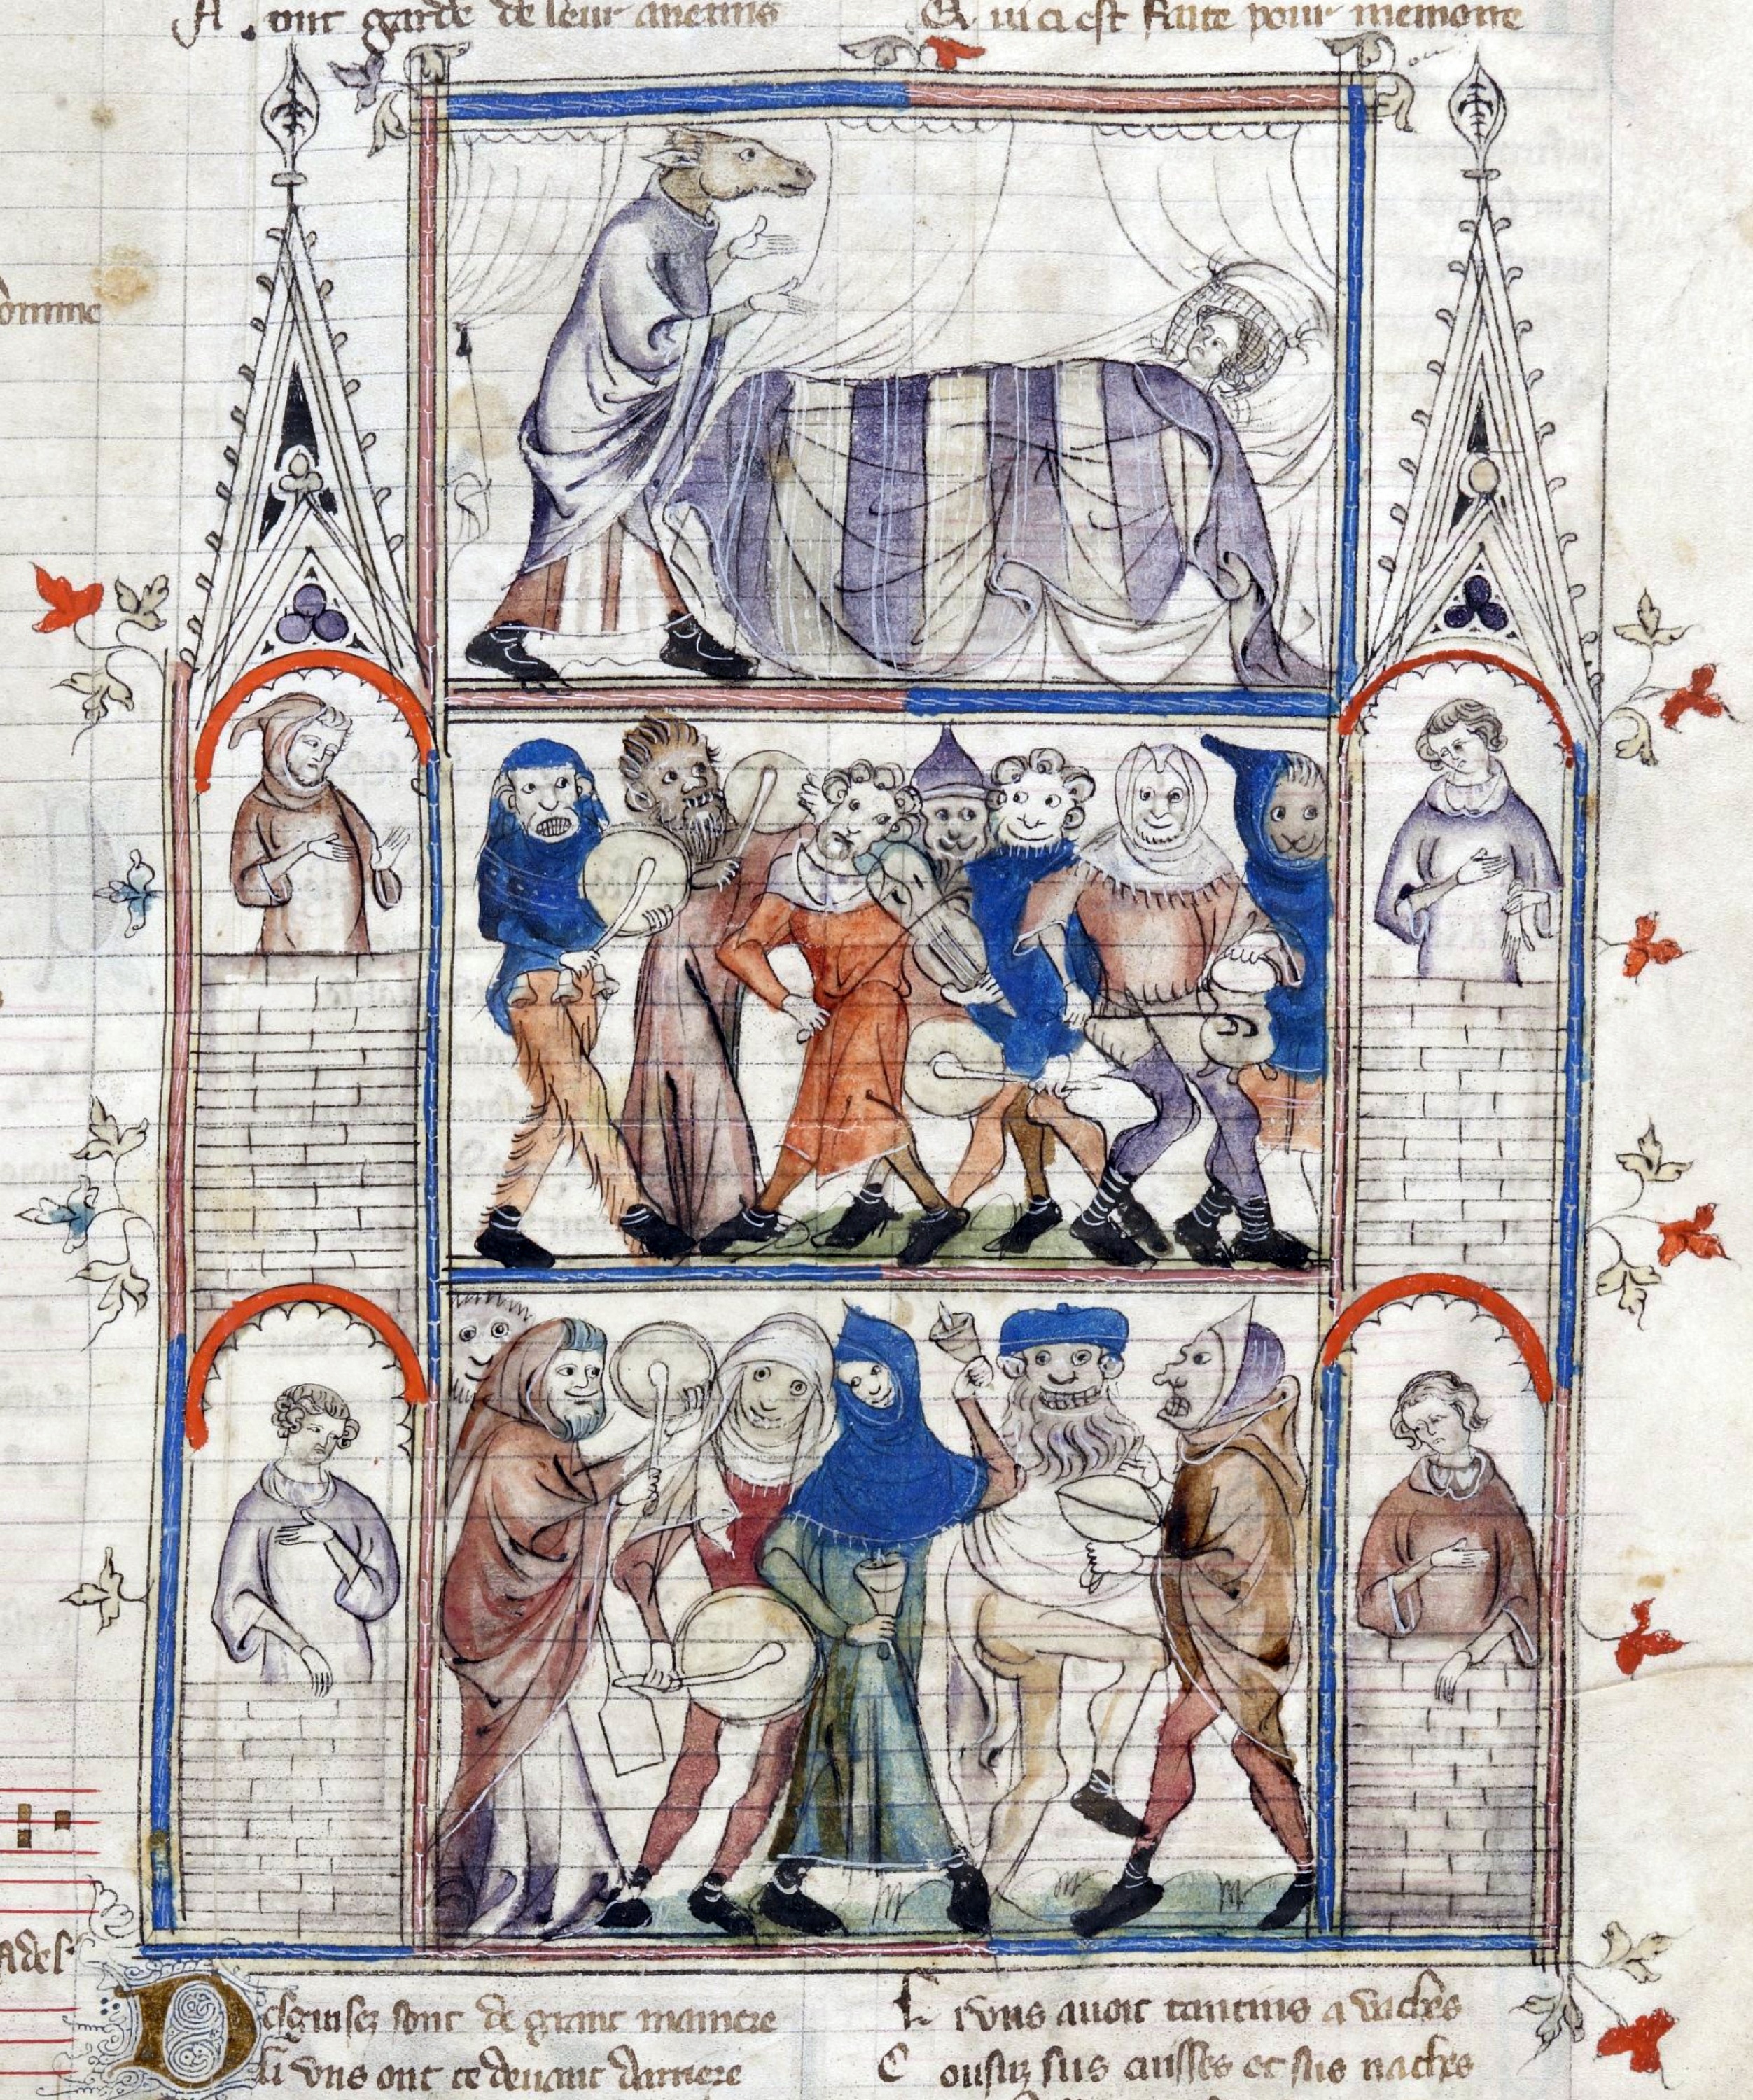 A ont garde de leur anemis
Qui ci est faite pour memoire
omme
ades
Desguisez sont de grant maniere
Li vns ont ce deuant darriere
Li vns auoit tantins a vaches
Cousuz sus cuisses et sus naches